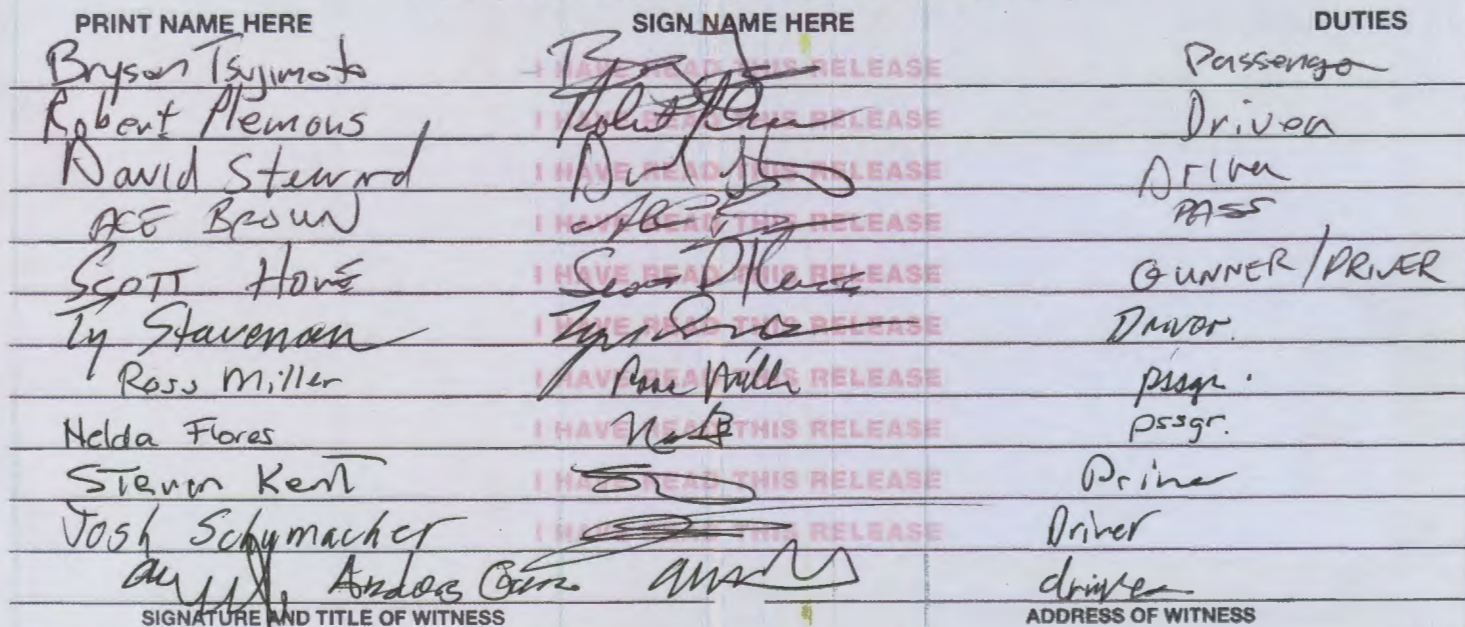 PRINT NAME HERE SIGN NAME HERE DUTIES
Bryson Tsujimoto I HAVE READ THIS RELEASE Passenge
Robert Plemons I HAVE READ THIS RELEASE Driver
David Steward I HAVE READ THIS RELEASE Driver
ACE BROWN I HAVE READ THIS RELEASE PASS
SCOTT HOWE I HAVE READ THIS RELEASE GUNNER/DRIVER
Ty Stavenan I HAVE READ THIS RELEASE Driver.
Ross Miller I HAVE READ THIS RELEASE pssgr.
Nelda Flores I HAVE READ THIS RELEASE pssgr.
Steven Kent I HAVE READ THIS RELEASE Driver
Josh Schumacher I HAVE READ THIS RELEASE Driver
driver
SIGNATURE AND TITLE OF WITNESS ADDRESS OF WITNESS